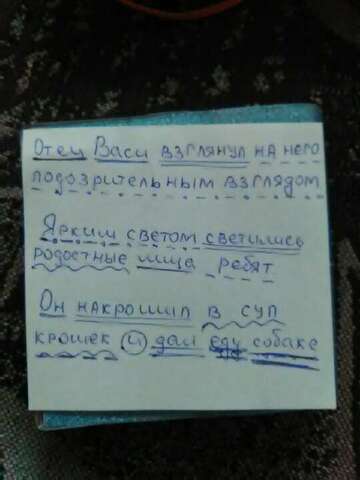 Отец Васи взглянул на него
подозрительным взглядом
Ярким светом светились
радостные лица ребят
Он накрошил в суп
крошек и дал еду собаке